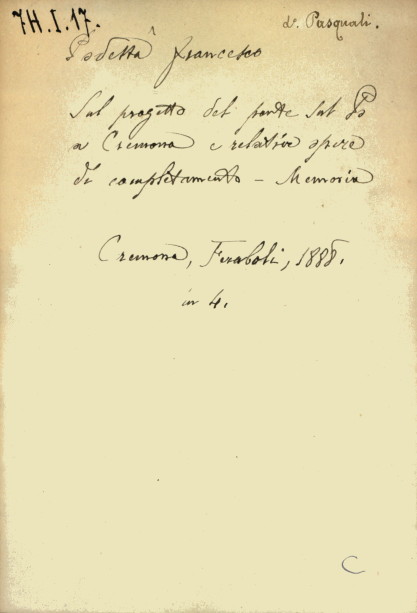 7H.I.17.
d. Pasquali.
Podestà Francesco
Sul progetto del ponte sul Po
a Cremona e relative opere
di completamento — Memoria
Cremona, Feraboli, 1888.
in 4.
C